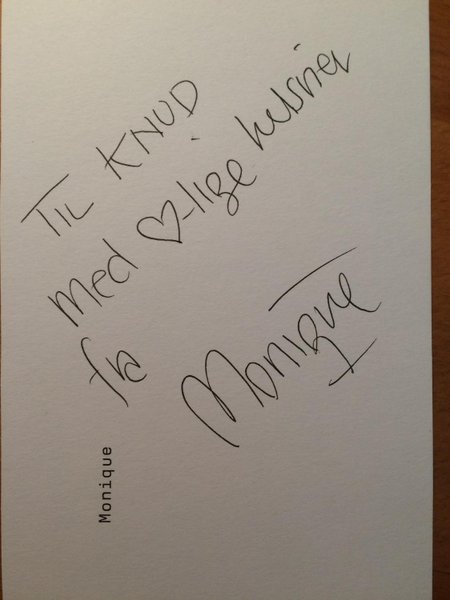 TIL KNUD
Med ♡-lige hilsner
fra
Monique
Monique